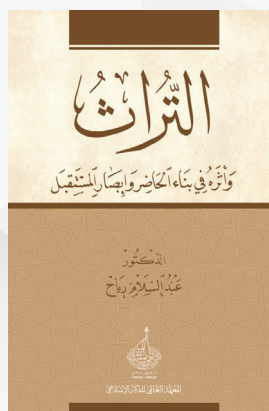 التُّرَاثُ
وَأَثَرُهُ فِي بِنَاءِ الْحَاضِرِ وَإِبْصَارِ الْمُسْتَقْبَلِ
الدُّكْتُورْ
عَبْدُ السَّلَامِ رِيَاحْ
المعهد العالمي للفكر الإسلامي